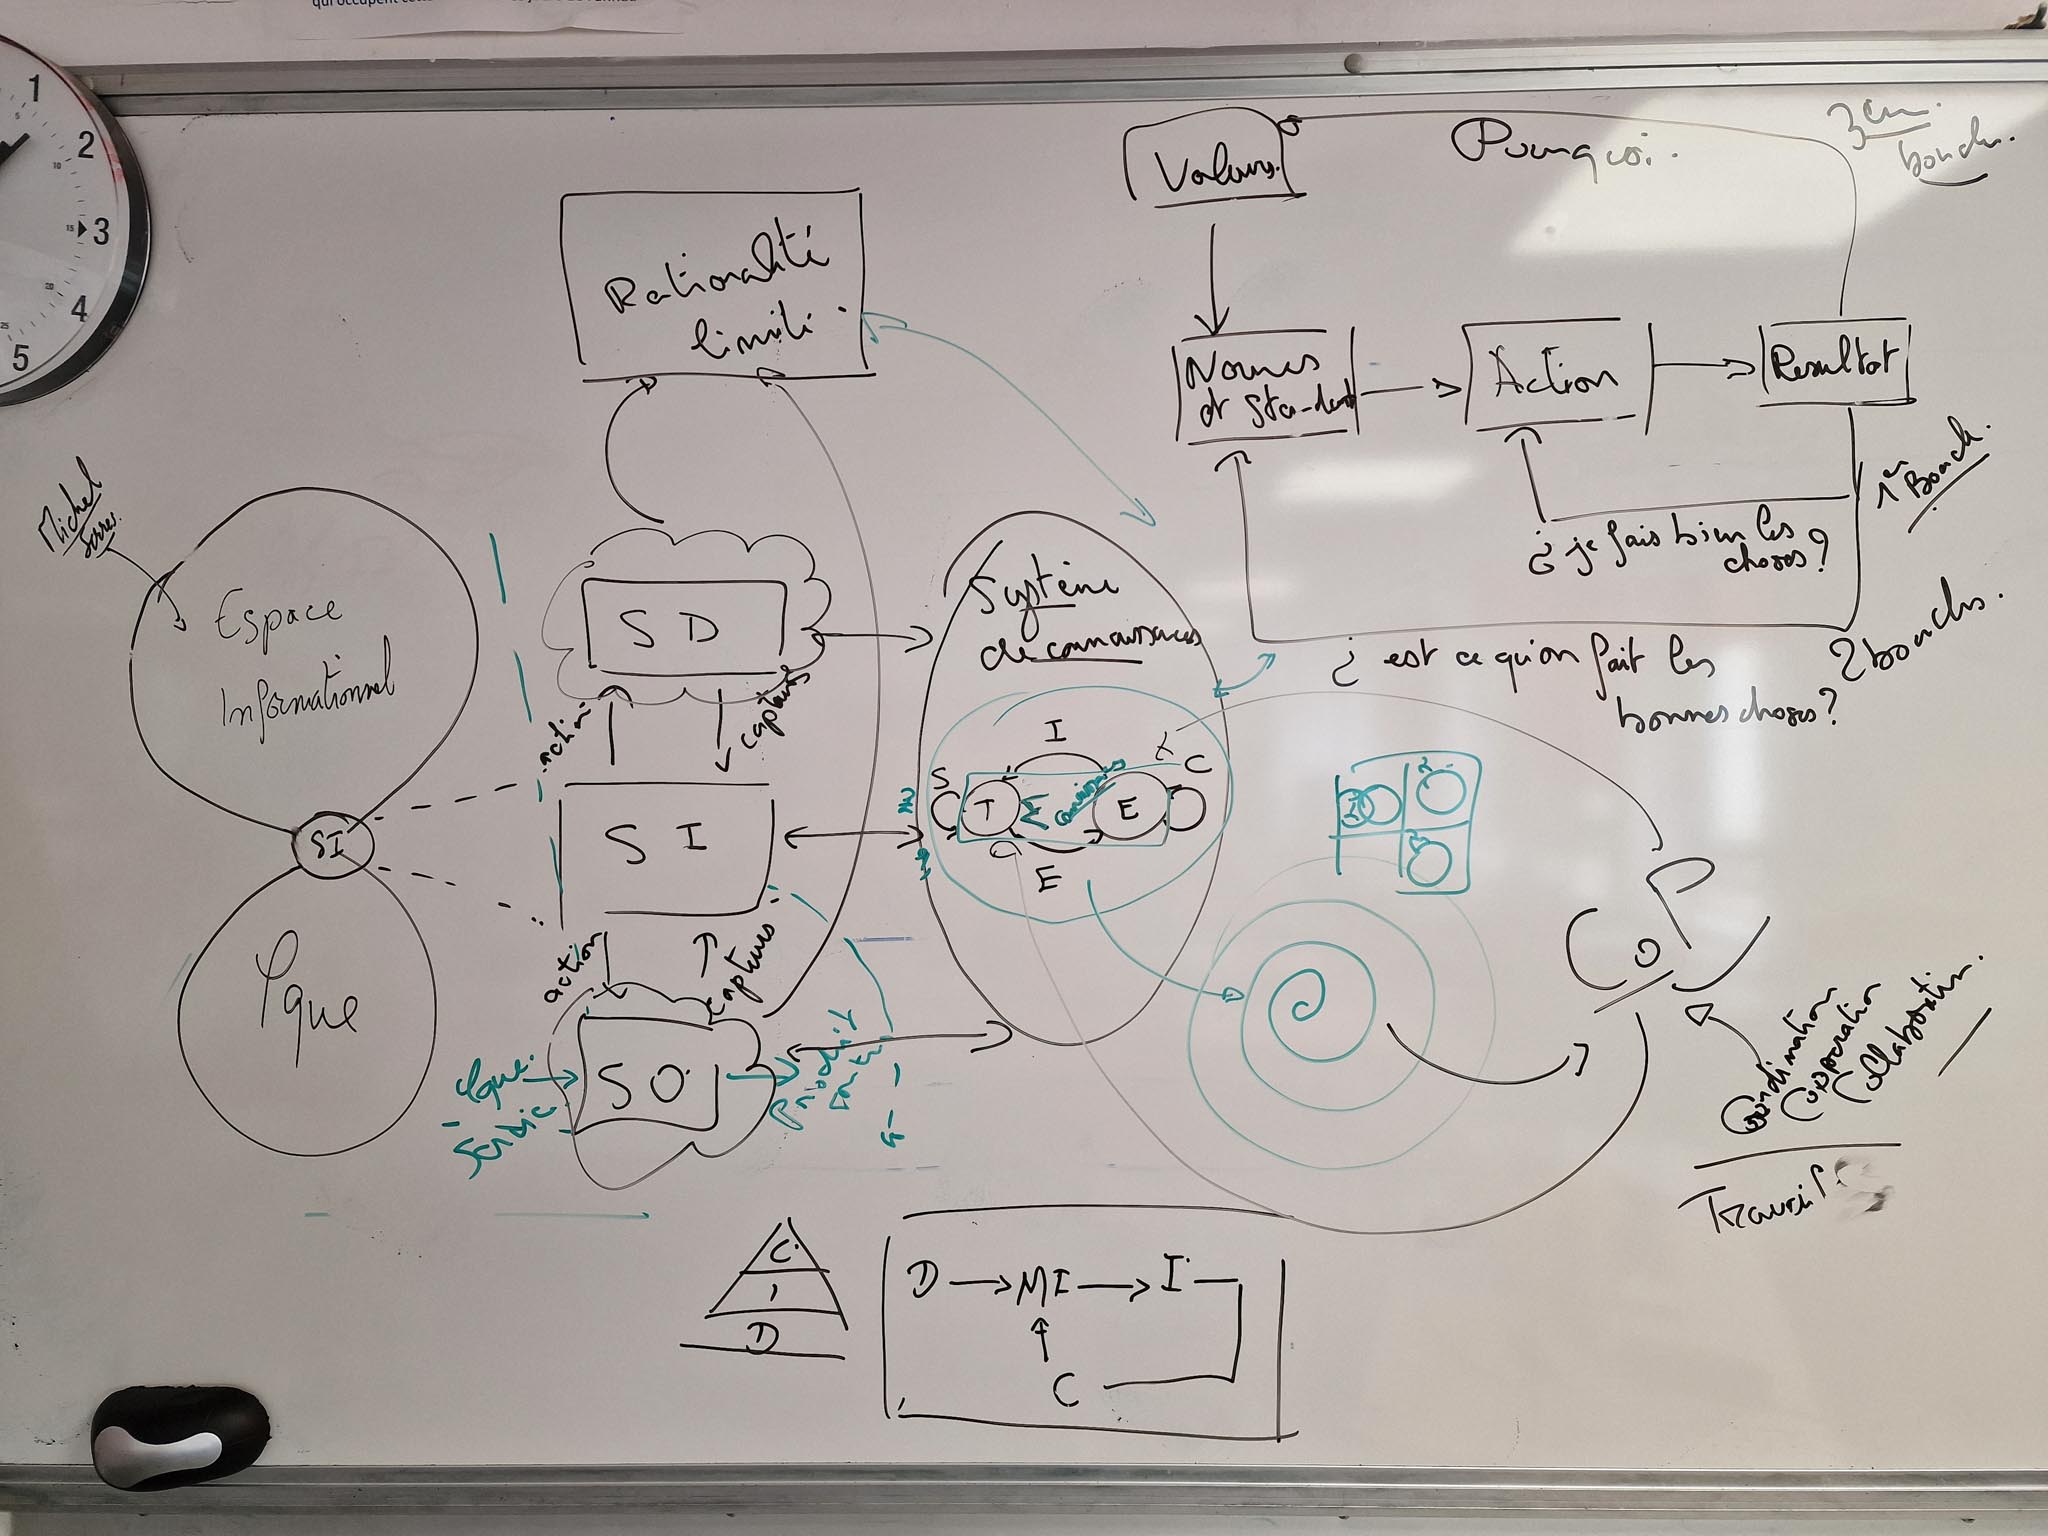 qui occupent
1
2
3
4
5
5
10
15
20
25
Valeurs.
Pourquoi.
3em.
boucle.
Rationalité
limité.
Normes
et Standard
Action
Resultat
1er Boucle.
¿ je fais bien les
choses?
2 boucles.
¿ est ce qu'on fait les
bonnes choses?
Michel
Serres.
Espace
Informationnel
SI
φque
S D
action
capteurs
S I
action
capteurs
S O.
φque.
Produit
Système
de connaissances
I
S
C
T
E
E
CoP
Coordination
Cooperation
Collaboration.
Travail
C.
I
D
D → MI → I.
C